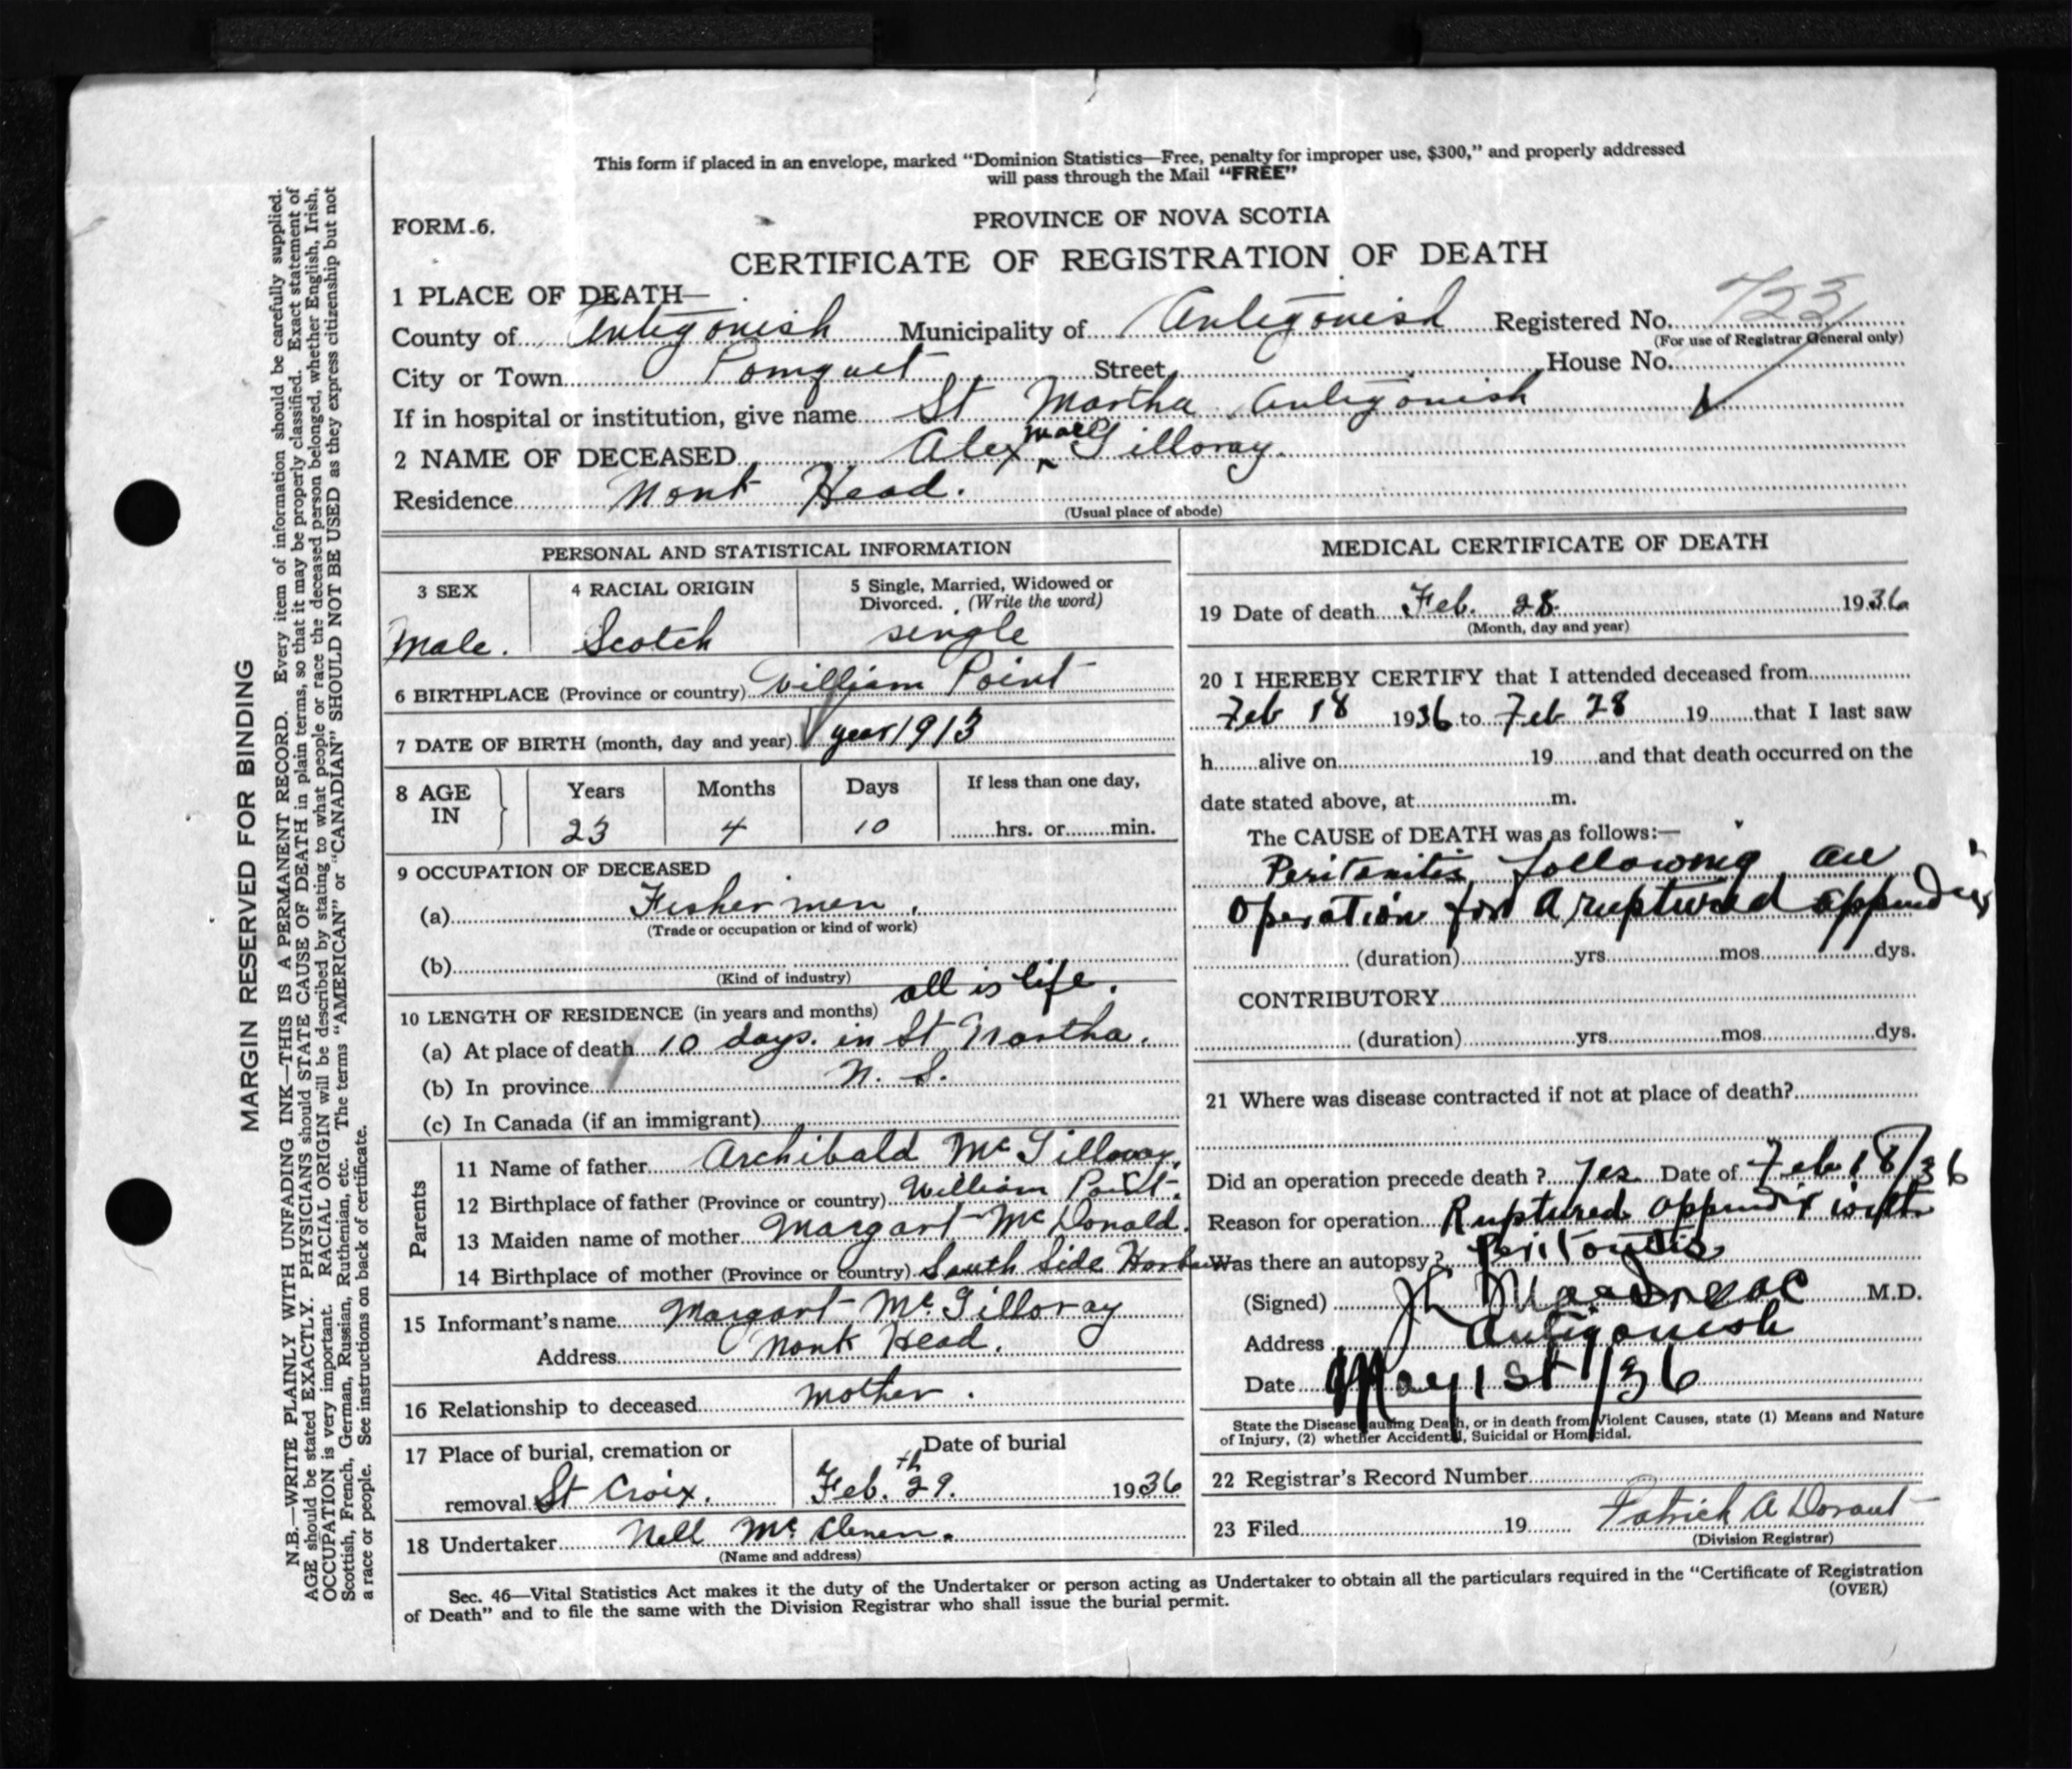 This form if placed in an envelope, marked “Dominion Statistics—Free, penalty for improper use, $300,” and properly addressed
will pass through the Mail “FREE”
FORM 6.
PROVINCE OF NOVA SCOTIA
CERTIFICATE OF REGISTRATION OF DEATH
1 PLACE OF DEATH—
County of Antigonish Municipality of Antigonish Registered No. 723
(For use of Registrar General only)
City or Town Pomquet Street House No.
If in hospital or institution, give name St Martha Antigonish
2 NAME OF DECEASED Alex MacGilloray.
Residence Monk Head.
(Usual place of abode)
PERSONAL AND STATISTICAL INFORMATION
3 SEX 4 RACIAL ORIGIN 5 Single, Married, Widowed or
Divorced. (Write the word)
Male. Scotch single
6 BIRTHPLACE (Province or country) William Point
7 DATE OF BIRTH (month, day and year) year 1913
8 AGE IN Years Months Days If less than one day,
23 4 10 hrs. or min.
9 OCCUPATION OF DECEASED
(a) Fishermen.
(Trade or occupation or kind of work)
(b)
(Kind of industry)
all is life.
10 LENGTH OF RESIDENCE (in years and months)
(a) At place of death 10 days. in St Martha.
(b) In province N. S.
(c) In Canada (if an immigrant)
Parents
11 Name of father Archibald McGilloray.
12 Birthplace of father (Province or country) William Point.
13 Maiden name of mother Margart McDonald.
14 Birthplace of mother (Province or country) South Side Harbor
15 Informant's name Margart McGilloray
Address Monk Head.
16 Relationship to deceased mother.
17 Place of burial, cremation or Date of burial
removal St Croix. Feb. 29th. 1936
18 Undertaker Nell Mc
(Name and address)
MEDICAL CERTIFICATE OF DEATH
19 Date of death Feb. 28. 1936
(Month, day and year)
20 I HEREBY CERTIFY that I attended deceased from
Feb 18 1936 to Feb 28 19 that I last saw
h alive on 19 and that death occurred on the
date stated above, at m.
The CAUSE of DEATH was as follows:—
Peritonitis following an
operation for a ruptured appendix
(duration) yrs. mos. dys.
CONTRIBUTORY
(duration) yrs. mos. dys.
21 Where was disease contracted if not at place of death?
Did an operation precede death? Yes Date of Feb 18/36
Reason for operation Ruptured appendix with
Was there an autopsy? Peritonitis
(Signed) M.D.
Address Antigonish
Date May 1st/36
State the Disease causing Death, or in death from Violent Causes, state (1) Means and Nature
of Injury, (2) whether Accidental, Suicidal or Homicidal.
22 Registrar's Record Number
23 Filed 19 Patrick A Dorant
(Division Registrar)
Sec. 46—Vital Statistics Act makes it the duty of the Undertaker or person acting as Undertaker to obtain all the particulars required in the “Certificate of Registration
of Death” and to file the same with the Division Registrar who shall issue the burial permit.
(OVER)
MARGIN RESERVED FOR BINDING
N.B.—WRITE PLAINLY WITH UNFADING INK—THIS IS A PERMANENT RECORD. Every item of information should be carefully supplied.
AGE should be stated EXACTLY. PHYSICIANS should STATE CAUSE OF DEATH in plain terms, so that it may be properly classified. Exact statement of
OCCUPATION is very important. RACIAL ORIGIN will be described by stating to what people or race the deceased person belonged, whether English, Irish,
Scottish, French, German, Russian, Ruthenian, etc. The terms “AMERICAN” or “CANADIAN” SHOULD NOT BE USED as they express citizenship but not
a race or people. See instructions on back of certificate.